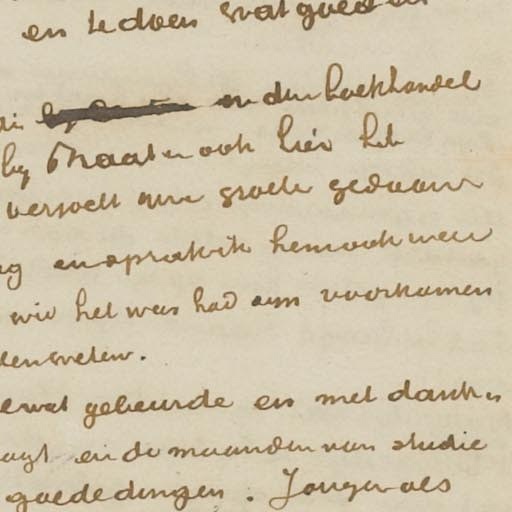 en te doen wat goed en
in den boekhandel
by Maaten ook hier het
verzoek om groete gedaan
en sprak ik hem ook weer
wie het was had aan voorkomen
den weten.
gebeurde en met dank
en de maanden van studie
goede dingen. Jonger als